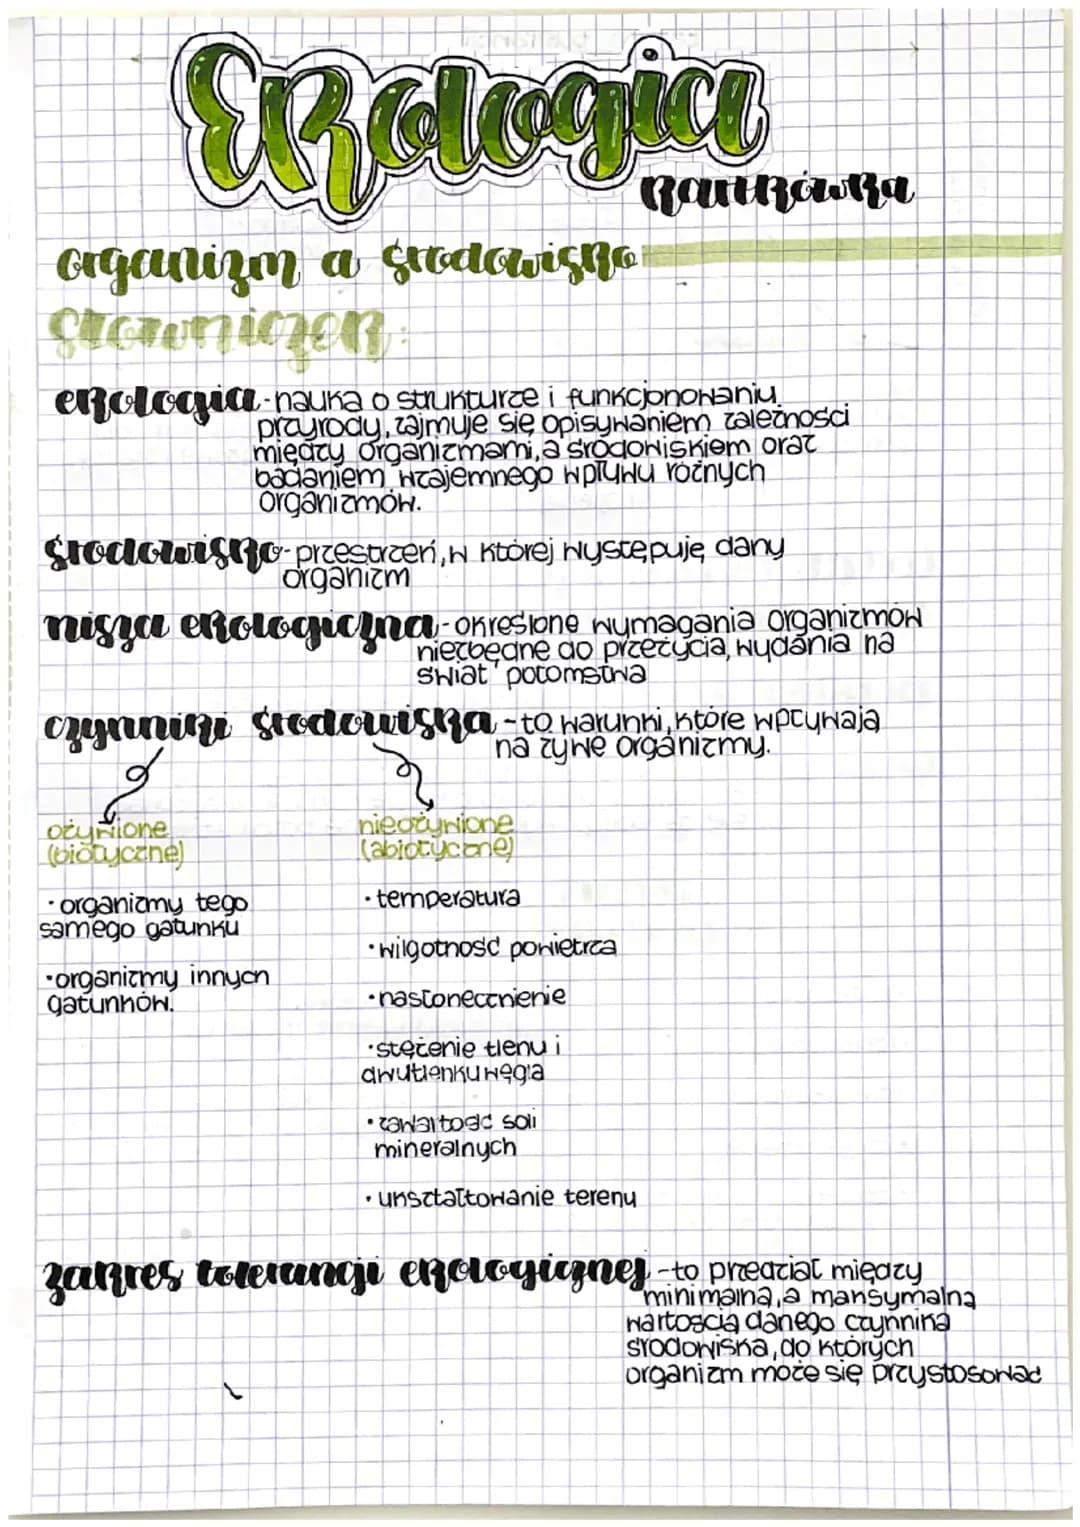 Ekologia
kartkówka
organizm a środowisko
słowniczek:
ekologia - nauka o strukturze i funkcjonowaniu
przyrody, zajmuje się opisywaniem zależności
między organizmami, a środowiskiem oraz
badaniem wzajemnego wpływu różnych
organizmów.
środowisko - przestrzeń, w której występuję dany
organizm
nisza ekologiczna - określone wymagania organizmów
niezbędne do przeżycia, wydania na
świat potomstwa
czynniki środowiska - to warunki, które wpływają
na żywe organizmy.
ożywione
(biotyczne)
• organizmy tego
samego gatunku
• organizmy innych
gatunków.
nieożywione
(abiotyczne)
• temperatura
• wilgotność powietrza
• nasłonecznienie
• stężenie tlenu i
dwutlenku węgla
• zawartość soli
mineralnych
• ukształtowanie terenu
zakres tolerancji ekologicznej - to przedział między
minimalną, a maksymalną
wartością danego czynnika
środowiska, do których
organizm może się przystosować